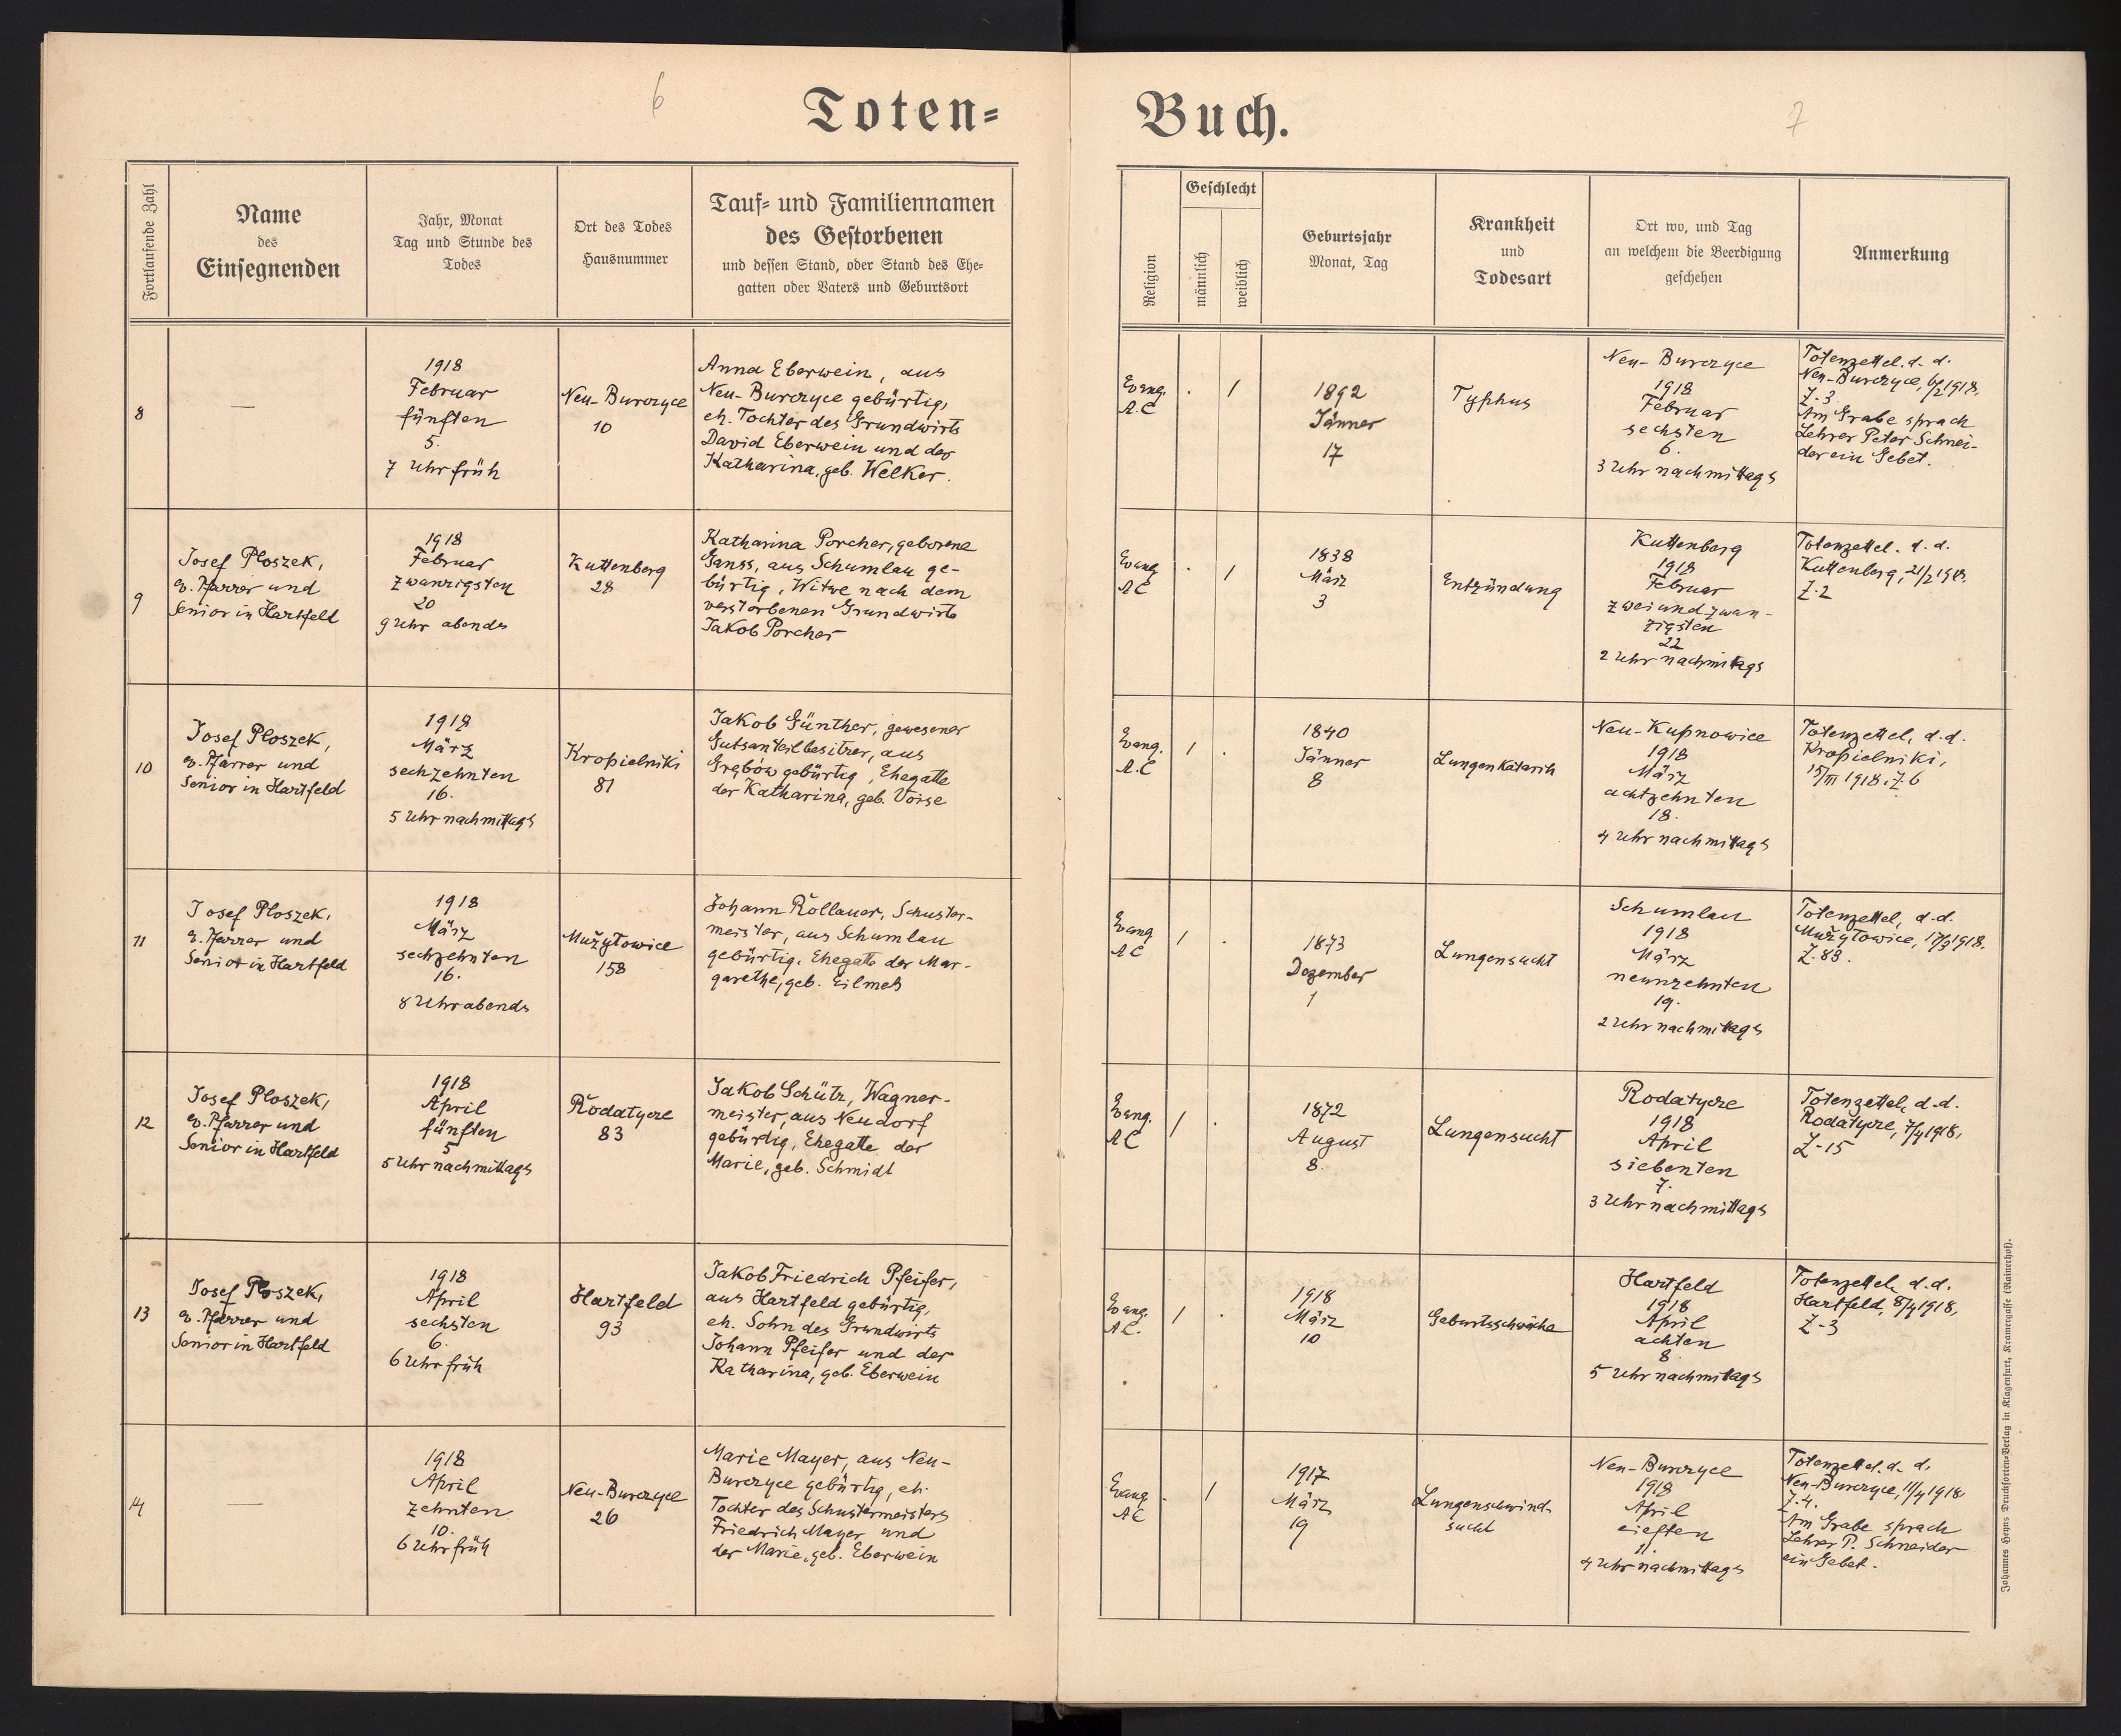 6
Toten=
Fortlaufende Zahl
Name
des
Einsegnenden
Jahr, Monat
Tag und Stunde des
Todes
Ort des Todes
Hausnummer
Tauf= und Familiennamen
des Gestorbenen
und dessen Stand, oder Stand des Ehe=
gatten oder Vaters und Geburtsort
8
—
1918
Februar
fünften
5.
7 Uhr früh
Neu-Burczyce
10
Anna Eberwein, aus
Neu-Burczyce gebürtig,
eh. Tochter des Grundwirts
David Eberwein und der
Katharina, geb. Welker.
9
Josef Ploszek,
ev. Pfarrer und
Senior in Hartfeld
1918
Februar
zwanzigsten
20
9 Uhr abends
Kuttenberg
28
Katharina Porcher, geborene
Ganss, aus Schumlau ge-
bürtig, Witwe nach dem
verstorbenen Grundwirts
Jakob Porcher
10
Josef Ploszek,
ev. Pfarrer und
Senior in Hartfeld
1918
März
sechzehnten
16.
5 Uhr nachmittags
Kropielniki
81
Jakob Günther, gewesener
Gutsanteilbesitzer, aus
Grębów gebürtig, Ehegatte
der Katharina, geb. Voise
11
Josef Ploszek,
ev. Pfarrer und
Senior in Hartfeld
1918
März
sechzehnten
16.
8 Uhr abends
Mużyłowice
158
Johann Rollauer, Schuster-
meister, aus Schumlau
gebürtig, Ehegatte der Mar-
garethe, geb. Eilmes
12
Josef Ploszek,
ev. Pfarrer und
Senior in Hartfeld
1918
April
fünften
5
5 Uhr nachmittags
Rodatycze
83
Jakob Schütz, Wagner-
meister, aus Neudorf
gebürtig, Ehegatte der
Marie, geb. Schmidt
13
Josef Ploszek,
ev. Pfarrer und
Senior in Hartfeld
1918
April
sechsten
6.
6 Uhr früh
Hartfeld
93
Jakob Friedrich Pfeifer,
aus Hartfeld gebürtig,
eh. Sohn des Grundwirts
Johann Pfeifer und der
Katharina, geb. Eberwein
14
—
1918
April
zehnten
10.
6 Uhr früh
Neu-Burczyce
26
Marie Mayer, aus Neu-
Burczyce gebürtig, eh.
Tochter des Schustermeisters
Friedrich Mayer und
der Marie, geb. Eberwein
7
Buch.
Religion
Geschlecht
männlich
weiblich
Geburtsjahr
Monat, Tag
Krankheit
und
Todesart
Ort wo, und Tag
an welchem die Beerdigung
geschehen
Anmerkung
Evang.
A.C
.
1
1892
Jänner
17
Typhus
Neu-Burczyce
1918
Februar
sechsten
6.
3 Uhr nachmittags
Totenzettel. d. d.
Neu-Burczyce, 6/2 1918.
Z. 3.
Am Grabe sprach
Lehrer Peter Schnei-
der ein Gebet.
Evang
A C
.
1
1838
März
3
Entzündung
Kuttenberg
1918
Februar
zweiundzwan-
zigsten
22
2 Uhr nachmittags
Totenzettel. d. d.
Kuttenberg, 21/2 1918.
Z. 2
Evang.
A. C
1
.
1840
Jänner
8
Lungenkatarrh
Neu-Kupnowice
1918
März
achtzehnten
18.
4 Uhr nachmittags
Totenzettel, d. d.
Kropielniki,
15/III 1918. Z. 6
Evang
A C
1
.
1873
Dezember
1
Lungensucht
Schumlau
1918
März
neunzehnten
19.
2 Uhr nachmittags
Totenzettel, d. d.
Mużyłowice, 17/3 1918.
Z. 83.
Evang.
A C
1
.
1872
August
8.
Lungensucht
Rodatycze
1918
April
siebenten
7.
3 Uhr nachmittags
Totenzettel, d. d.
Rodatycze, 7/4 1918,
Z-15
Evang.
A C.
1
.
1918
März
10
Geburtsschwäche
Hartfeld
1918
April
achten
8
5 Uhr nachmittags
Totenzettel, d. d.
Hartfeld, 8/4 1918,
Z-3
Evang
A C
.
1
1917
März
19
Lungenschwind-
sucht
Neu-Burczyce
1918
April
elften
11.
4 Uhr nachmittags
Totenzettel. d. d.
Neu-Burczyce, 11/4 1918
Z. 4.
Am Grabe sprach
Lehrer P. Schneider
ein Gebet.
Johannes Heyns Drucksorten-Verlag in Klagenfurt, Kramergasse (Rainerhof).